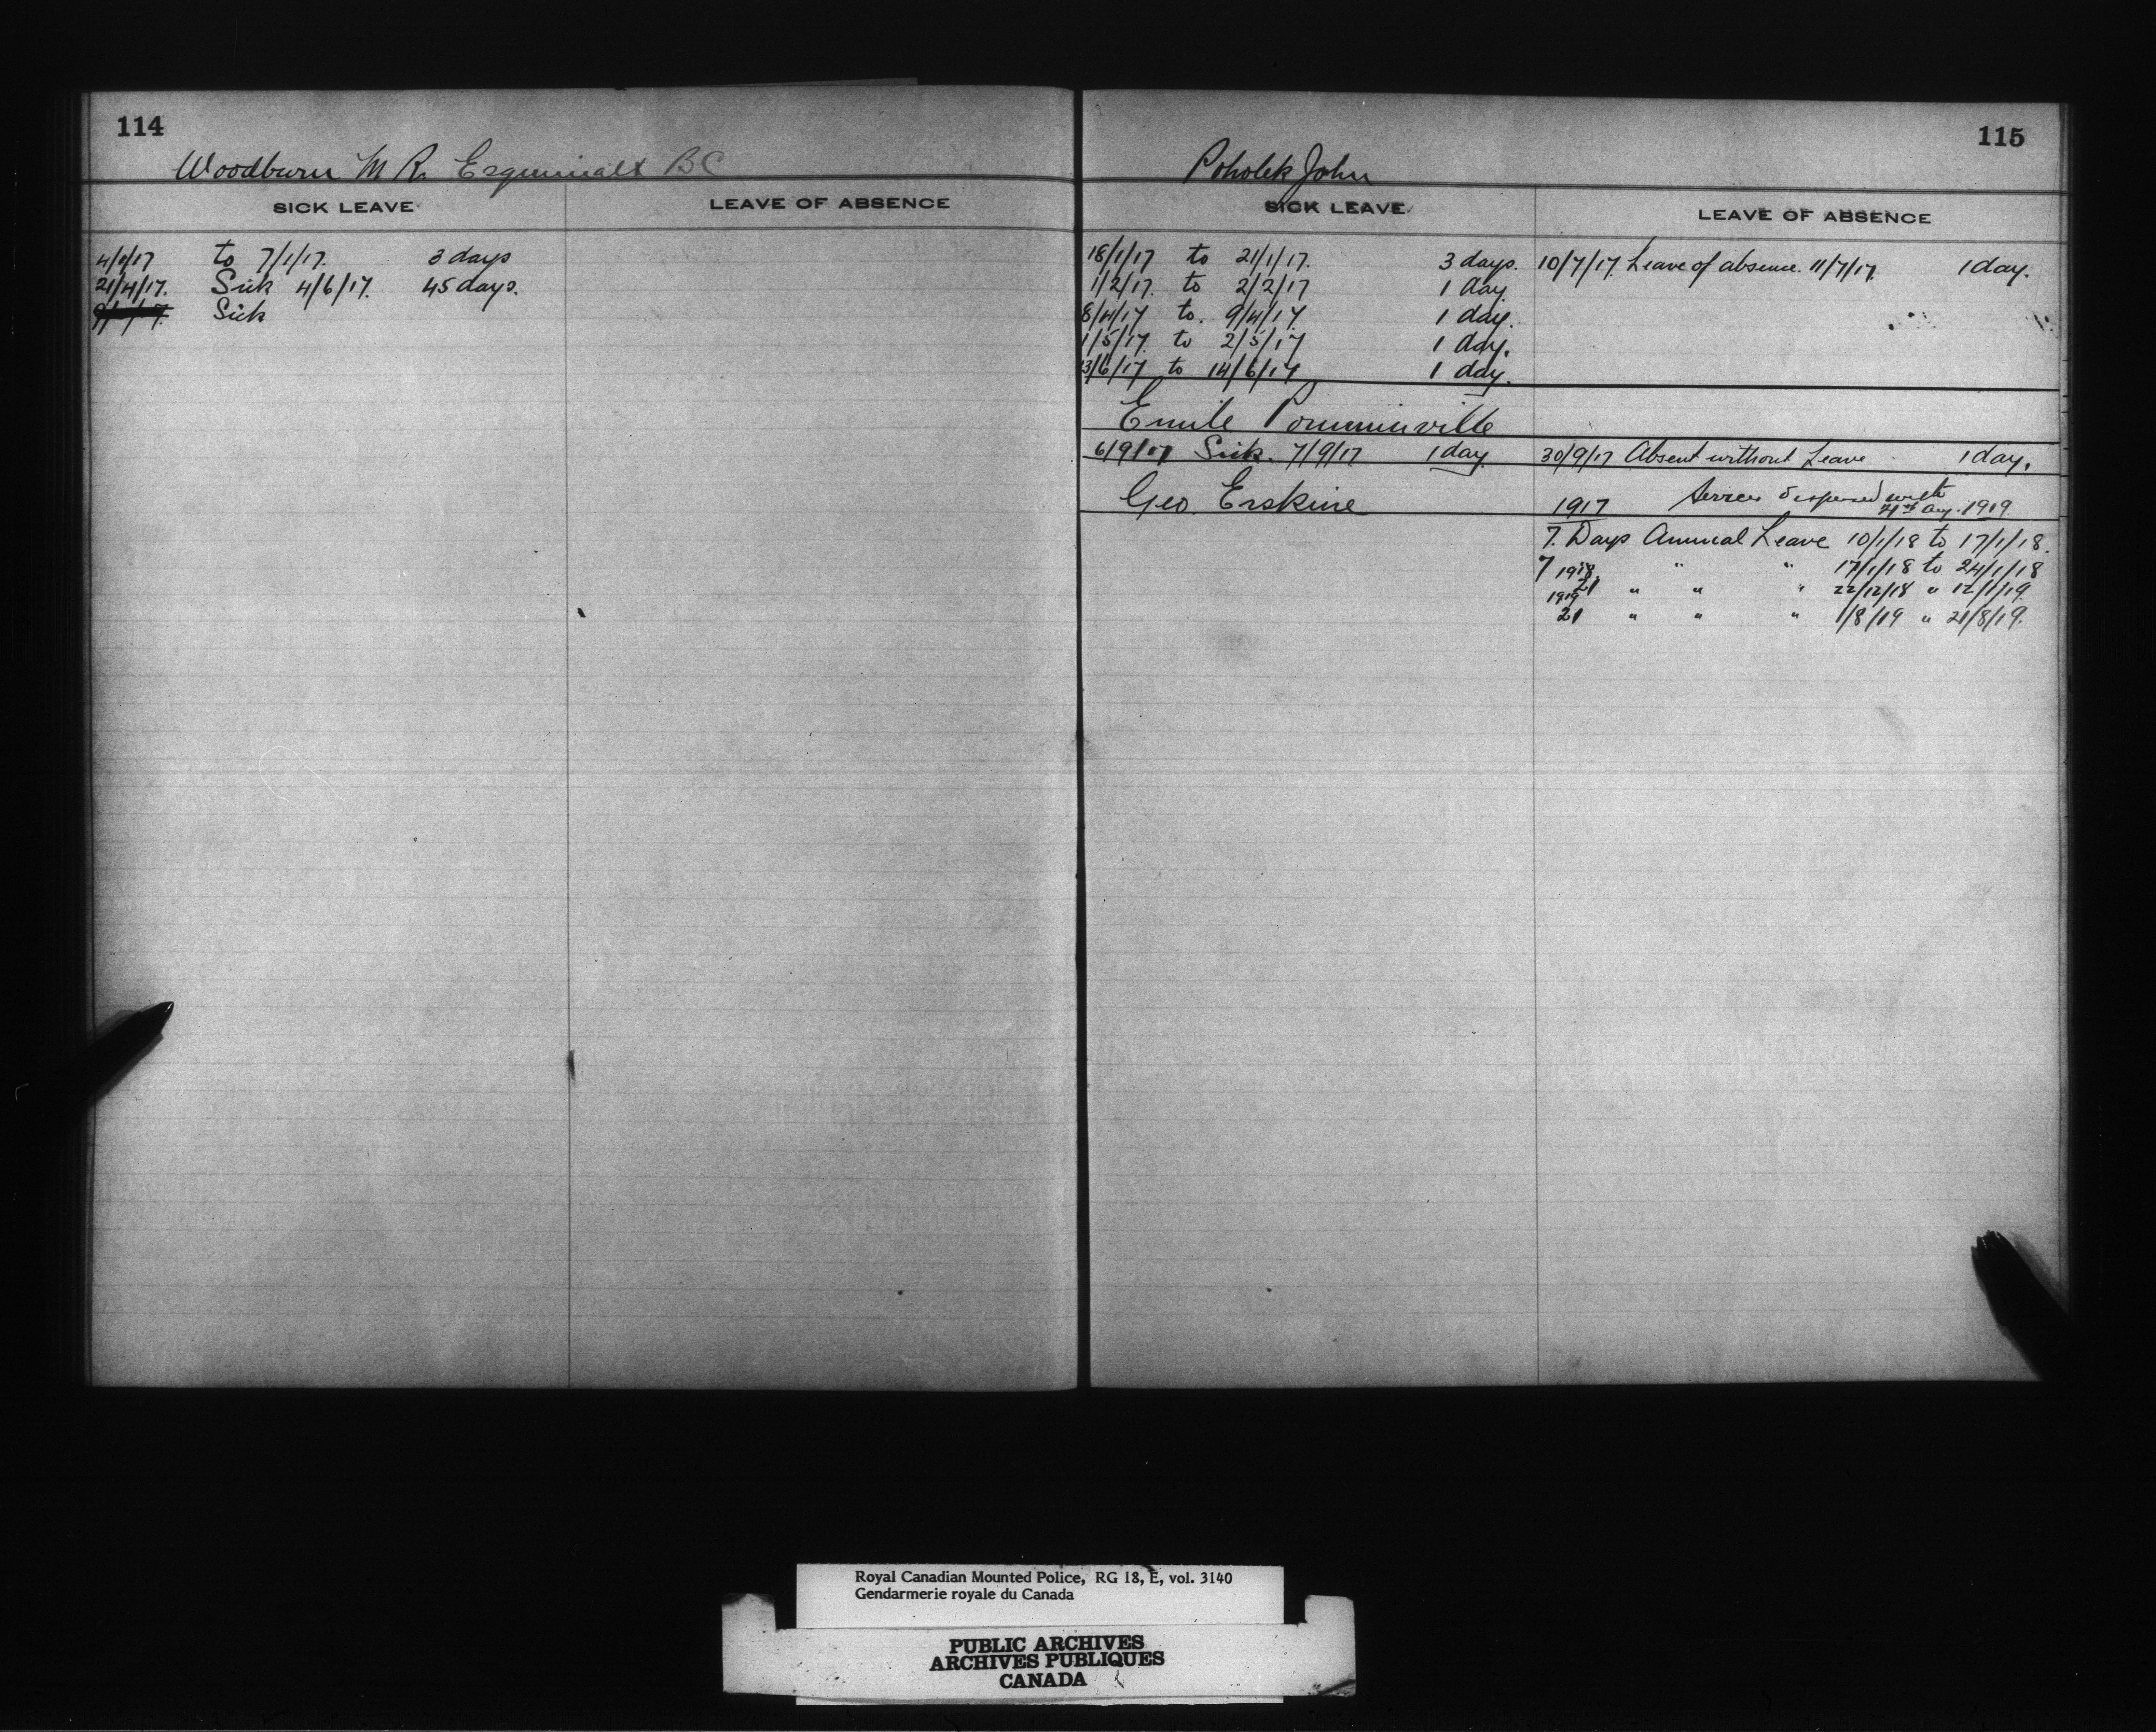 114
Woodburn M R. Esquimalt BC
SICK LEAVE LEAVE OF ABSENCE
4/1/17 to 7/1/17. 3 days
21/4/17. Sick 4/6/17. 45 days.
Sick
115
Poholek John
SICK LEAVE LEAVE OF ABSENCE
18/1/17 to 21/1/17. 3 days. 10/7/17. Leave of absence. 11/7/17. 1 day.
1/2/17. to 2/2/17 1 day.
8/4/17 to. 9/4/17. 1 day.
1/5/17. to 2/5/17 1 day.
13/6/17 to 14/6/17 1 day.
Emile Pomminville
6/9/17 Sick. 7/9/17 1 day. 30/9/17 Absent without Leave 1 day.
Geo. Erskine 1917 Services dispensed with
21st Aug. 1919.
7. Days Annual Leave 10/1/18 to 17/1/18.
7 1918. " " 17/1/18 to 24/1/18
21 " " " 22/12/18 " 12/1/19.
1919
21 " " " 1/8/19 " 21/8/19.
Royal Canadian Mounted Police, RG 18, E, vol. 3140
Gendarmerie royale du Canada
PUBLIC ARCHIVES
ARCHIVES PUBLIQUES
CANADA